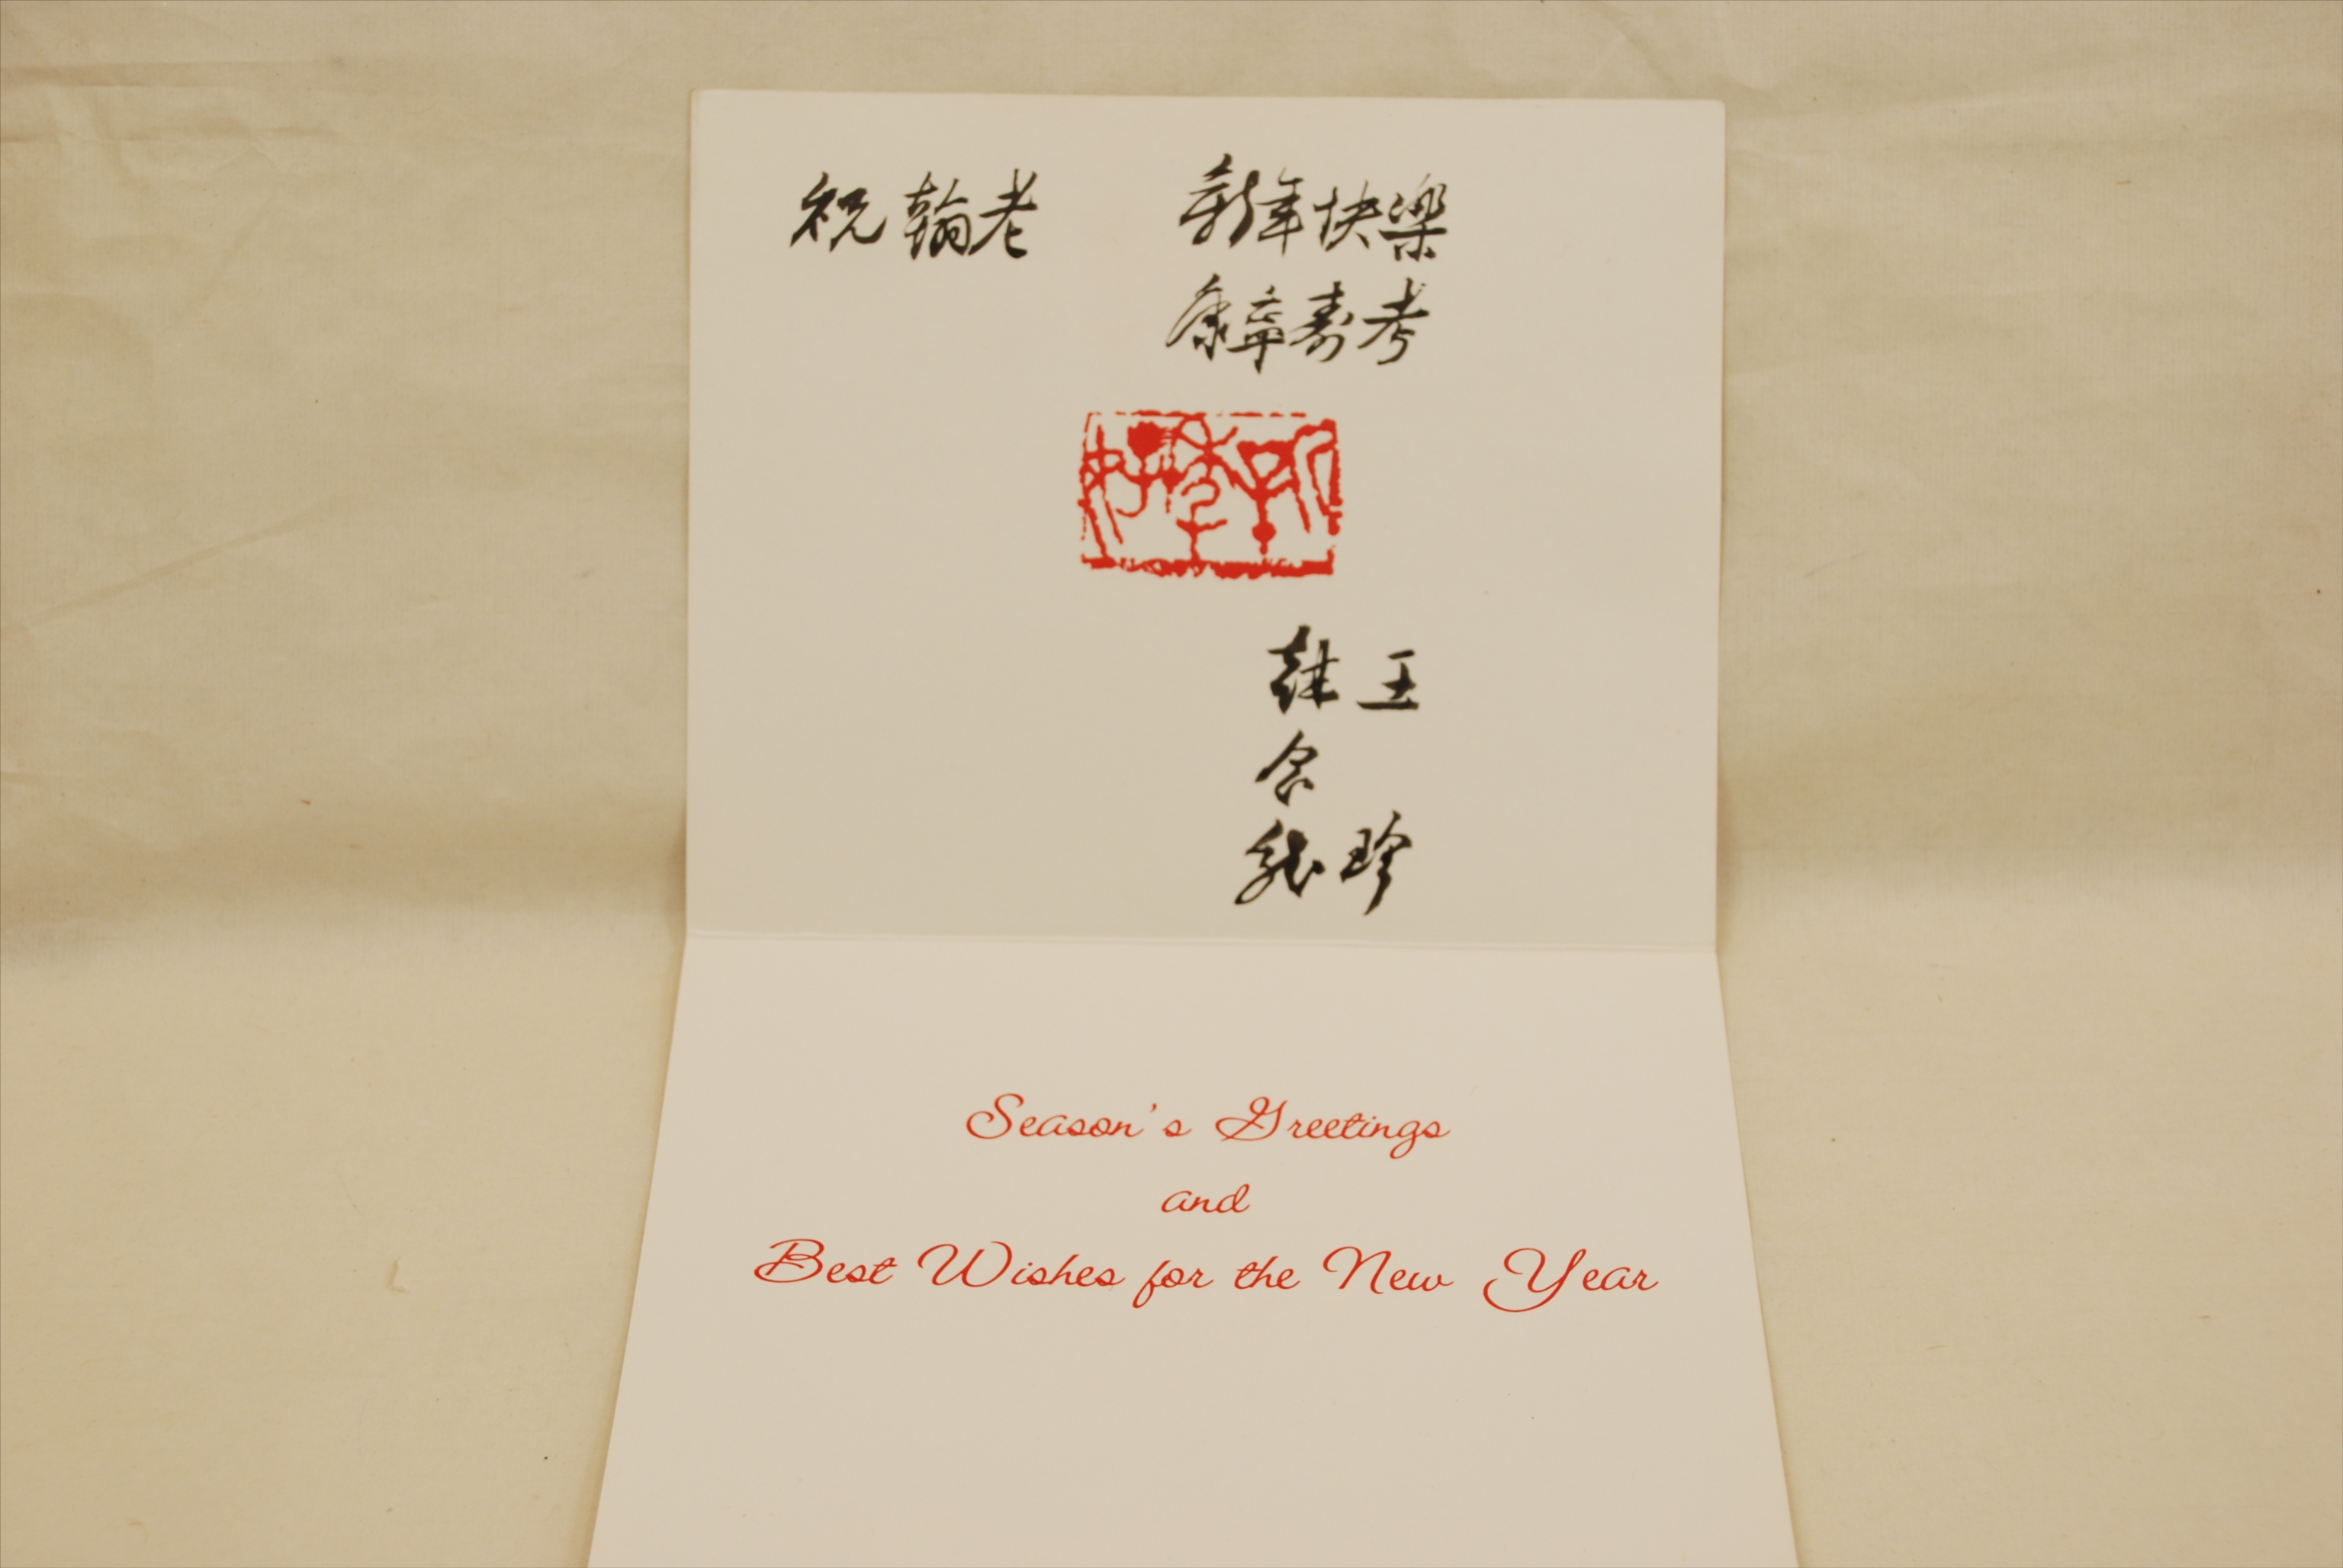 祝翰老 新年快樂
康寧壽考
新年好
王
珍
Season's Greetings
and
Best Wishes for the New Year